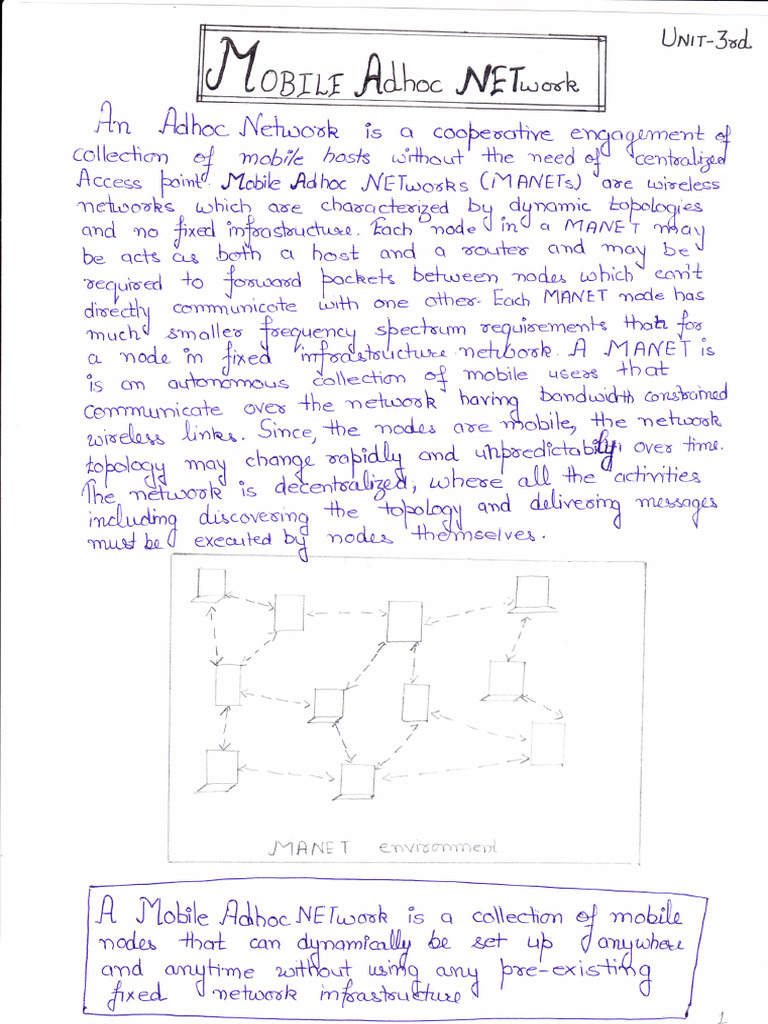 UNIT-3rd
MOBILE Adhoc NETwork
An Adhoc Network is a cooperative engagement of
collection of mobile hosts without the need of centralized
Access point. Mobile Adhoc NETworks (MANETs) are wireless
networks which are characterized by dynamic topologies
and no fixed infrastructure. Each node in a MANET may
be acts as both a host and a router and may be
required to forward packets between nodes which can't
directly communicate with one other. Each MANET node has
much smaller frequency spectrum requirements than for
a node in fixed infrastructure network. A MANET is
is an autonomous collection of mobile users that
communicate over the network having bandwidth constrained
wireless links. Since, the nodes are mobile, the network
topology may change rapidly and unpredictabily, over time.
The network is decentralized, where all the activities
including discovering the topology and delivering messages
must be executed by nodes themselves.
MANET environment
A Mobile Adhoc NETwork is a collection of mobile
nodes that can dynamically be set up anywhere
and anytime without using any pre-existing
fixed network infrastructure
1